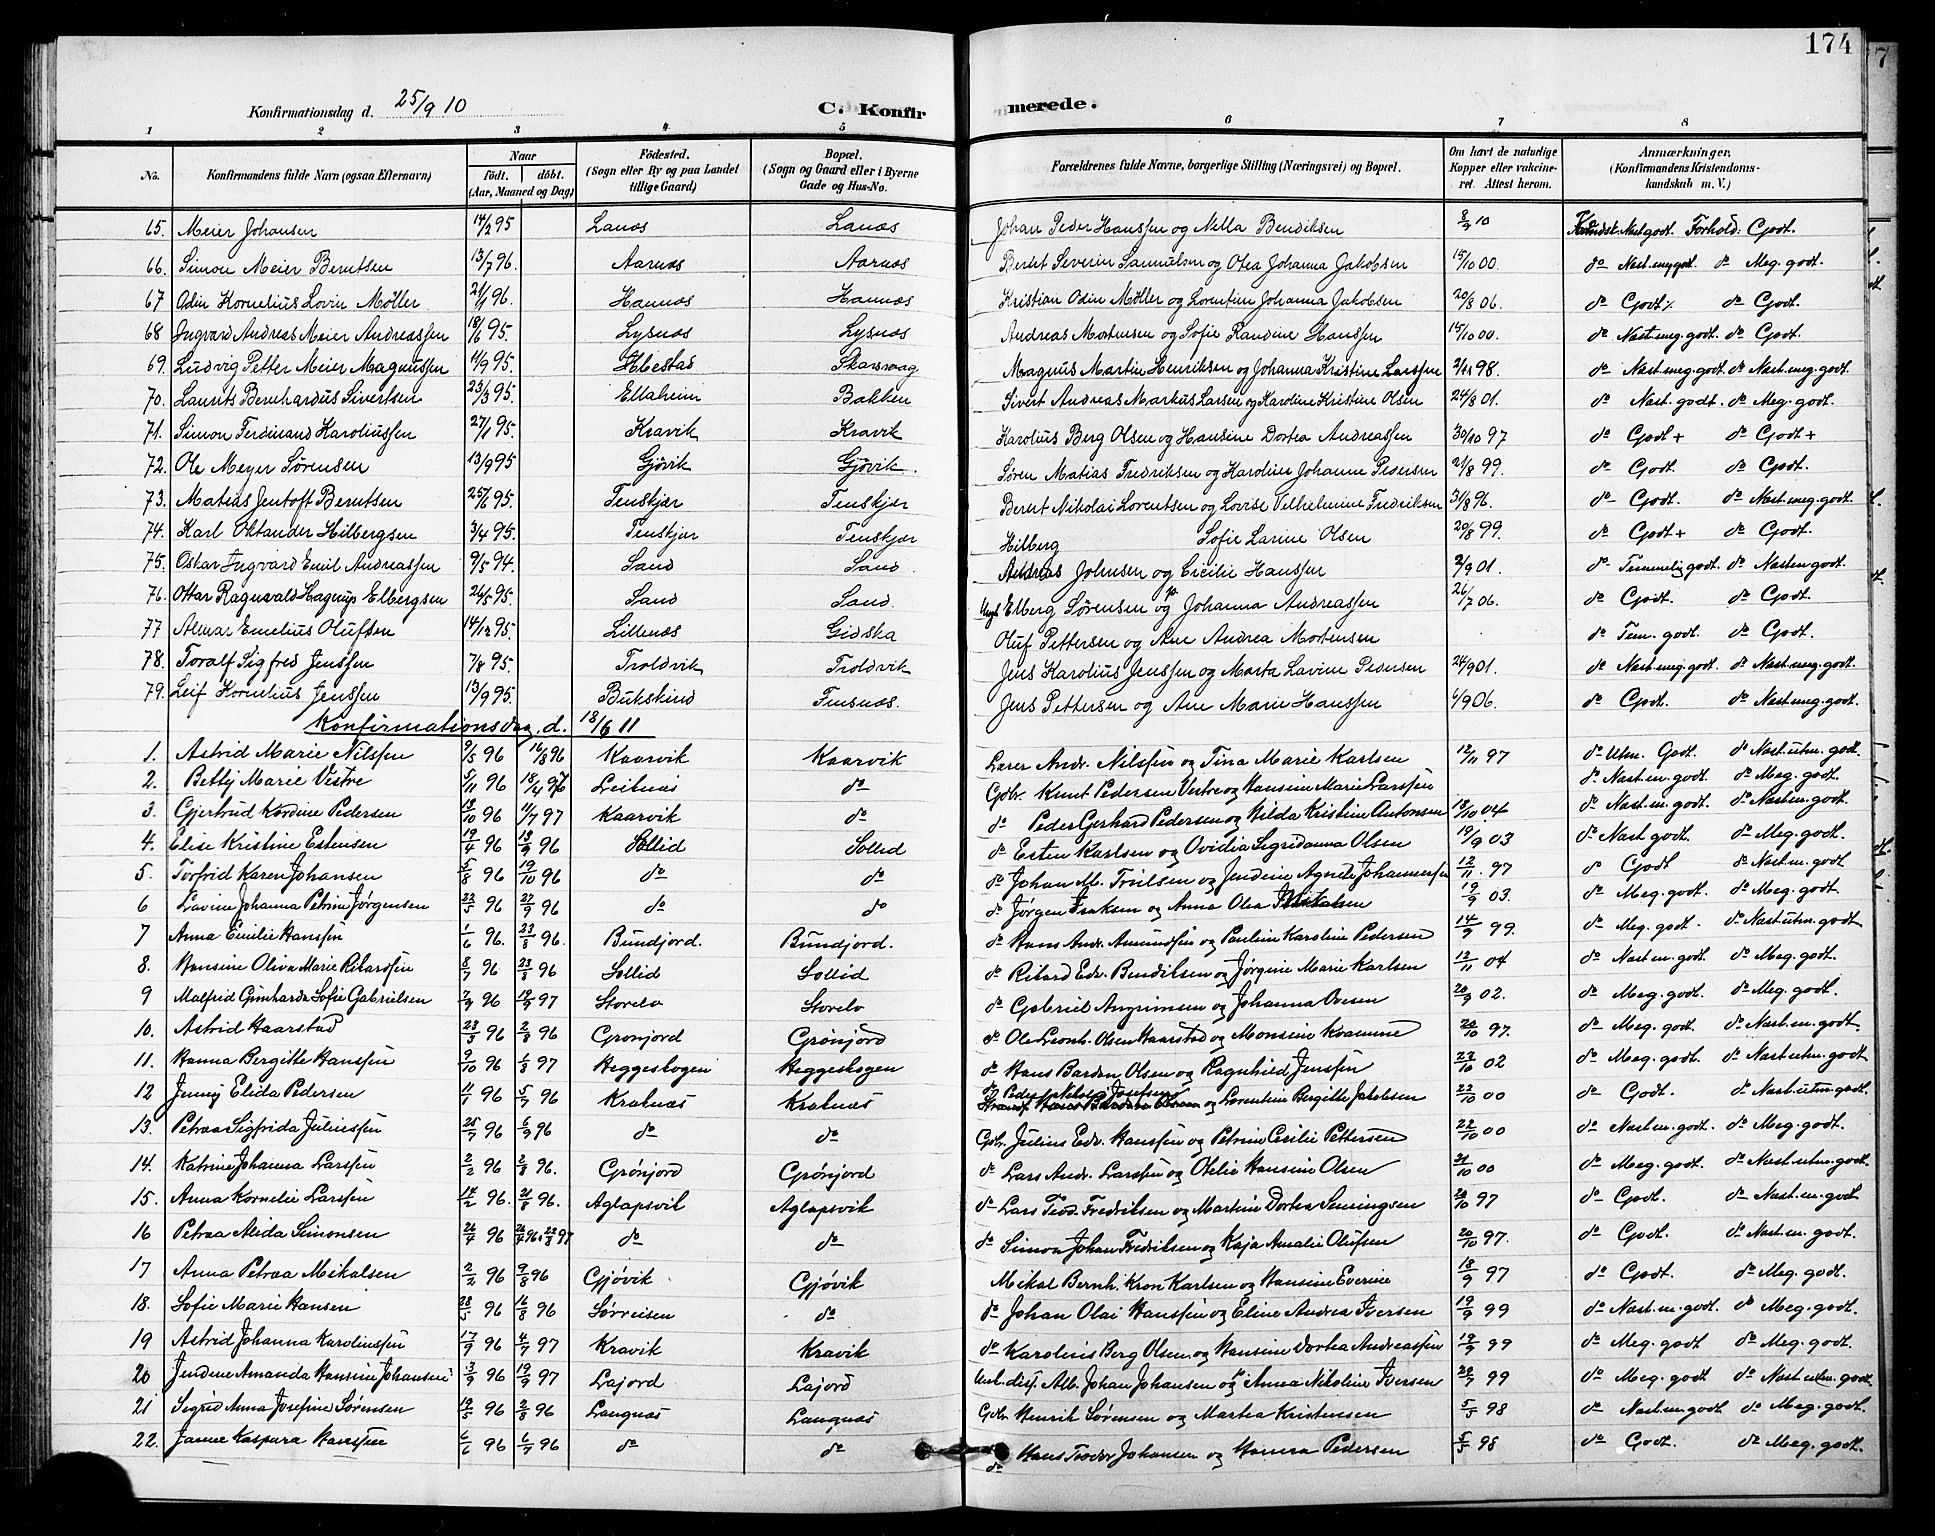 174
Konfirmationsdag d. 25/9 10 C. Konfirmerede.
1 2 3 4 5 6 7 8
No. Konfirmandens fulde Navn (ogsaa Efternavn) Naar født. døbt. (Aar, Maaned og Dag) Fødested. (Sogn eller By og paa Landet tillige Gaard) Bopæl. (Sogn og Gaard eller i Byerne Gade og Hus-No. Forældrenes fulde Navne, borgerlige Stilling (Næringsvei) og Bopæl. Om havt de naturlige Kopper eller vakcineret. Attest herom. Anmærkninger, (Konfirmandens Kristendomskundskab m. V.)
65. Meier Johansen 14/2 95 Lanæs Lanæs Johan Peder Hanssen og Nella Bendiksen 8/9 10 Kundsk. Næst godt. Forhold. Godt.
66. Simon Meier Berntsen 13/7 96. Aarnæs Aarnæs Bernt Severin Samulsen og Otea Johanna Jakobsen 15/10 00. do Næst. meg. godt. do Meg. godt.
67 Odin Kornelius Lovin Møller 21/1 96. Hannæs Hannæs Kristian Odin Møller og Lorentine Johanna Jakobsen 20/8 06. do Godt do Godt.
68 Ingvard Andreas Meier Andreassen 18/6 95. Lysnæs Lysnæs Andreas Mortensen og Sofie Randine Hanssen 15/10 00. do Næst. meg. godt. do Godt.
69. Ludvig Petter Meier Magnussen 11/9 95. Skarsvaag Magnus Martin Henriksen og Johanna Kristine Larssen 2/11 98. do Næst. meg. godt. do Næst. meg. godt.
70. Laurits Bernhardus Sivertsen 23/3 95. Ellaheim Bakken Sivert Andreas Markus Larsen og Karoline Kristine Olsen 24/8 01. do Næst. godt. do Meg. godt.
71. Simon Ferdinand Karoliussen 27/1 95. Kravik Kravik Karolius Berg Olsen og Hansine Dortea Andreassen 30/10 97 do Godt + do Godt +
72. Ole Meyer Sørensen 13/9 95 Gjøvik Gjøvik. Søren Matias Fredriksen og Karoline Johanne Pedersen 21/8 99. do Godt. do Godt.
73. Matias Jentoft Berntsen 25/6 95. Tenskjær Tenskjær Bernt Nikolai Lorentsen og Lovise Vilhelmine Fredriksen 31/8 96. do Godt. do Næst. meg. godt.
74. Karl Oktander Hilbergsen 3/4 95. Tenskjær Tenskjær Hilberg Sofie Larine Olsen 20/8 99. do Godt + do Godt.
75. Oskar Ingvard Emil Andreassen 9/5 94. Sand Sand. Andreas Johnsen og Cicilie Hanssen 2/9 01. do Temmelig godt. do Næsten godt.
76. Ottar Ragnvald Hagrup Elbergsen 26/5 95. Sand Sand. Elberg Sørensen og Johanna Andreassen 26/7 06. do Godt. do Godt.
77 Almar Emelius Olufsen 14/12 95. Lillenæs Gidska Oluf Pettersen og Ane Andrea Mortensen do Tem. godt. do Godt.
78. Toralf Sigfred Jenssen 7/8 95. Troldvik Troldvik Jens Karolius Jenssen og Marta Lavine Pedersen 24/9 01. do Næst. meg. godt. do Næst. meg. godt.
79. Leif Kornelius Jenssen 13/9 95. Bukskind Finsnæs. Jens Pettersen og Ane Marie Hanssen 6/9 06. do Godt. do Næst. meg. godt.
Konfirmationsdag. d. 18/6 11
1. Astrid Marie Nilssen 9/5 96 16/8 96 Kaarvik Kaarvik Lærer Andr. Nilssen og Tina Marie Karlsen 12/11 97 do Utm. Godt. do Næst. utm. godt.
2. Betty Marie Vestre 5/11 96 18/4 97 Leiknæs do Gbr. Knut Pedersen Vestre og Hansine Marie Larssen do Næst. m. godt. do Meg. godt.
3. Gjertrud Kordine Pedersen 18/10 96 11/7 97 Kaarvik do do Peder Gerhard Pedersen og Hilda Kristine Antonsen 18/10 04 do Næst. m. godt. do Næst. m. godt.
4. Elise Kristine Estensen 19/4 96 13/9 96 Sollid Sollid do Esten Karlsen og Ovidia Sigridanna Olsen 19/9 03 do Næst godt. do Meg. godt.
5. Torfrid Karen Johansen 5/8 96 19/10 96 do do do Johan M. Troilsen og Jendine Agnete Johannessen 12/11. 97 do Godt do Næst. m. godt
6 Lavine Johanna Petrine Jørgensen 22/5 96 27/9 96 do do do Jørgen Isaksen og Anna Olea 19/9 03. do Meg. godt. do Meg. godt
7 Anna Emilie Hanssen 1/6 96. 23/8 96. Bundjord. Bundjord. do Hans Andr. Amundsen og Pauline Karoline Pedersen 14/9 99. do Meg. godt. do Næst utm. godt
8. Hansine Oliva Marie Rikardsen 8/7 96 23/8 96 Sollid Sollid do Rikard Edv. Bendiksen og Jørgine Marie Karlsen 12/11 04 do Næst m. godt. do Meg. godt.
9 Malfrid Ginharda Sofie Gabrielsen 7/9 96 19/9 97 Storelv Storelv do Gabriel Angrimsen og Johanna Ovesen 20/9 02. do Meg. godt. do Meg. godt.
10. Astrid Haarstad 23/3 96 2/8 96 Grønjord Grønjord do Ole Leonh. Olsen Haarstad og Monsine Kvamme 20/10 97. do Meg. godt. do Næst. m. godt.
11. Hanna Bergitte Hanssen 9/10 96 1/8 97 Heggeskogen Heggeskogen do Hans Bardon Olsen og Ragnhild Jenssen 23/10 02 do Meg. godt. do Næst utm. godt
12 Jenny Elida Pedersen 11/1 96 5/7 96 Kraknæs Kraknæs do Peder Nikolai Josefsen og Lorentine Bergitte Jakobsen 23/10 00 do Godt. do Næst. utm. godt.
13. Petra Sigfrida Juliussen 25/7 96 6/9 96 do do Gbr. Julius Edv. Hanssen og Petrine Cecilie Pettersen 22/10 00 do Næst. m. godt. do Meg. godt.
14. Katrine Johanna Larssen 2/2 96 2/8 96. Grønjord Grønjord do Lars Andr. Larssen og Otelie Hansine Olsen 31/10 00 do Meg. godt. do Næst. utm. godt.
15. Anna Kornelie Larssen 14/2 96. 21/8 96. Aglapsvik Aglapsvik do Lars Teod. Fredriksen og Martine Dortea Semingsen 20/10 97 do Godt. do Næst. m. godt
16 Petra Alida Simonsen 26/4 96 26/4 96. 22/8 97 do do do Simon Johan Fredriksen og Kaja Amalie Olufsen 20/10 97. do Godt. do Næst. m. godt.
17 Anna Petra Mikalsen 2/2 96 9/8 96 Gjøvik Gjøvik Mikal Bernh. Kron Karlsen og Hansine Everine 18/9 97 do Godt. do Meg. godt.
18. Sofie Marie Hansen 28/5 96 16/8 96 Sørreisen do do Johan Olai Hanssen og Eline Andrea Iversen 19/9 99 do Næst. m. godt. do Meg. godt.
19 Astrid Johanna Karoliussen 17/9 96 4/7 97 Kravik Kravik do Karolius Berg Olsen og Hansine Dortea Andreassen 19/9 99 do Meg. godt. do Meg. godt.
20 Jendine Amanda Hansine Johansen 3/9 96 19/9 97 Lajord Lajord Alb. Johan Johansen og Anna Nikoline Iversen 20/7 99 do Meg. godt do Næst. utm. godt
21 Sigrid Anna Josefine Sørensen 19/5 96 2/8 96 Langnæs Langnæs Gbr. Henrik Sørensen og Martea Kristensen 5/5 98 do Næst. m. godt do Meg. godt.
22. Janne Kaspara Hanssen 6/6 96 6/7 96 do do do Hans Teodor Johansen og Hanna Pedersen 5/5 98 do Godt. do Meg. godt.